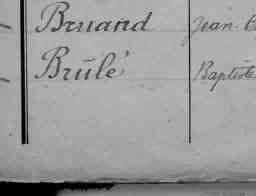 Bruand Jean-
Brûlé Baptiste